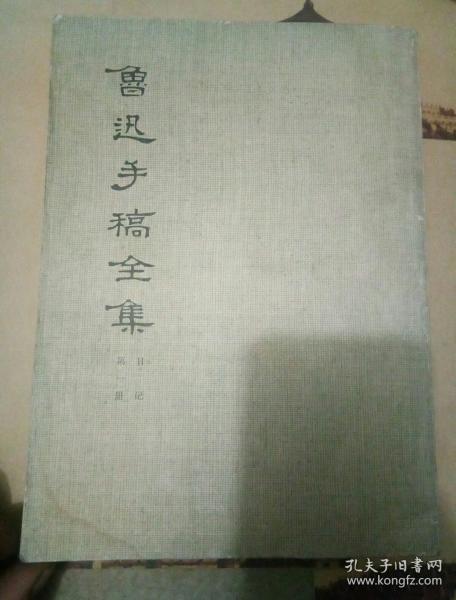 魯迅手稿全集
日记
第 册
孔夫子旧书网
www.kongfz.com